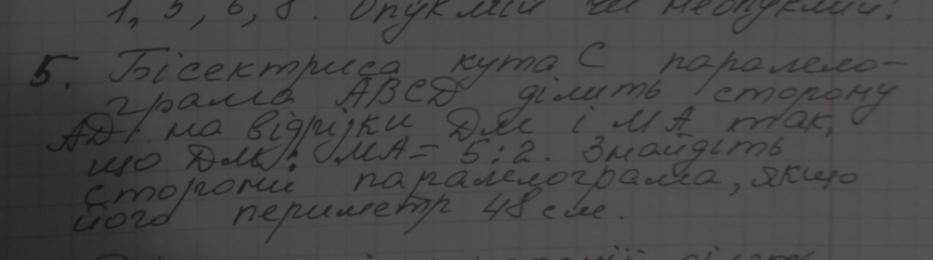 1, 5, 6, 8. Опуклий чи неопуклий.
5. Бісектриса кута С паралело-
грама ABCD ділить сторону
AD на відрізки DM і MA так,
що DM : MA = 5:2. Знайдіть
сторони паралелограма, якщо
його периметр 48 см.